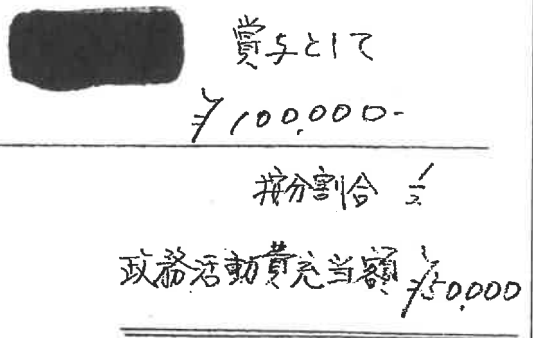 賞与として
¥100,000-
按分割合 1/2
政務活動費充当額 ¥50,000